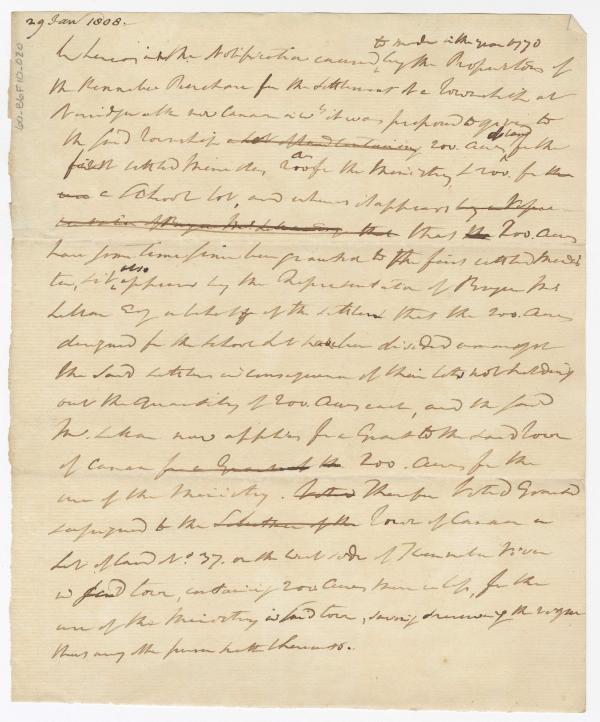 29 Jan 1808.
60-86F10-020
to made in the year 1770
Whereas in the Notification caused by the Proprietors of
the Kennebec Purchase for the settlement of a Township at
Norridgewalk now Canaan it was proposed to give to
the said Township a lot of land containing 200. Acres of land for the
first settled Minister, 200 as for the Ministry & 200. for the
use a School lot, and whereas it appears by a Repre-
sentation of Bryce McLellan Esq that that the 200. Acres
have some time since been granted to the first settled Minis-
ter, & it also appears by the Representation of Bryce Mc
Lellan Esq in behalf of the settlers that the 200. Acres
designed for the School Lot has been divided amongst
the said settlers in consequence of their lots not holding
out the quantity of 200. Acres each, and the said
Mc.Lellan now applies for a Grant to the said Town
of Canaan for a Grant of the 200. Acres for the
use of the Ministry. Voted Therefore Voted Granted
& assigned to the Town of Canaan a
Lot of land No. 37. on the west side of Kennebec River
in said town, containing 200 Acres more or less, for the
use of the Ministry in said town, saving & reserving the right
thus any other person hath thereto.